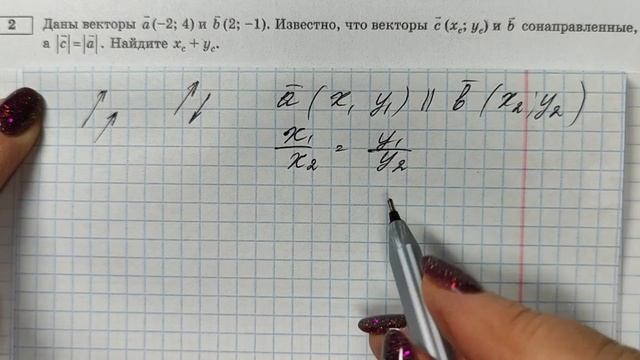 2 Даны векторы a̅(−2; 4) и b̅(2; −1). Известно, что векторы c̅(x_c; y_c) и b̅ сонаправленные,
а |c̅|=|a̅|. Найдите x_c + y_c.
a̅ (x₁ y₁) || b̅ (x₂; y₂)
x₁/x₂ = y₁/y₂